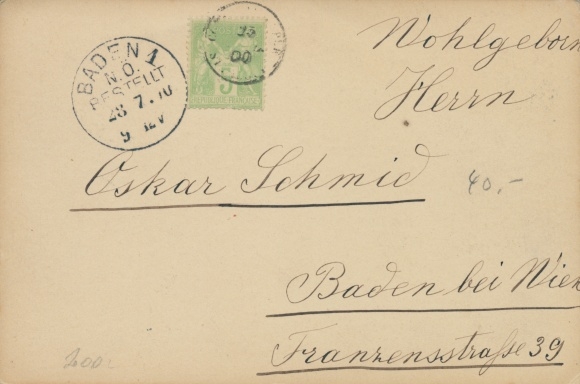 Wohlgeborn
Herrn
Oskar Schmid
Baden bei Wien
Franzensstraße 39
BADEN 1
N.Ö.
BESTELLT
28 7.
9
5
REPUBLIQUE FRANÇAISE
00
40.-
200.-